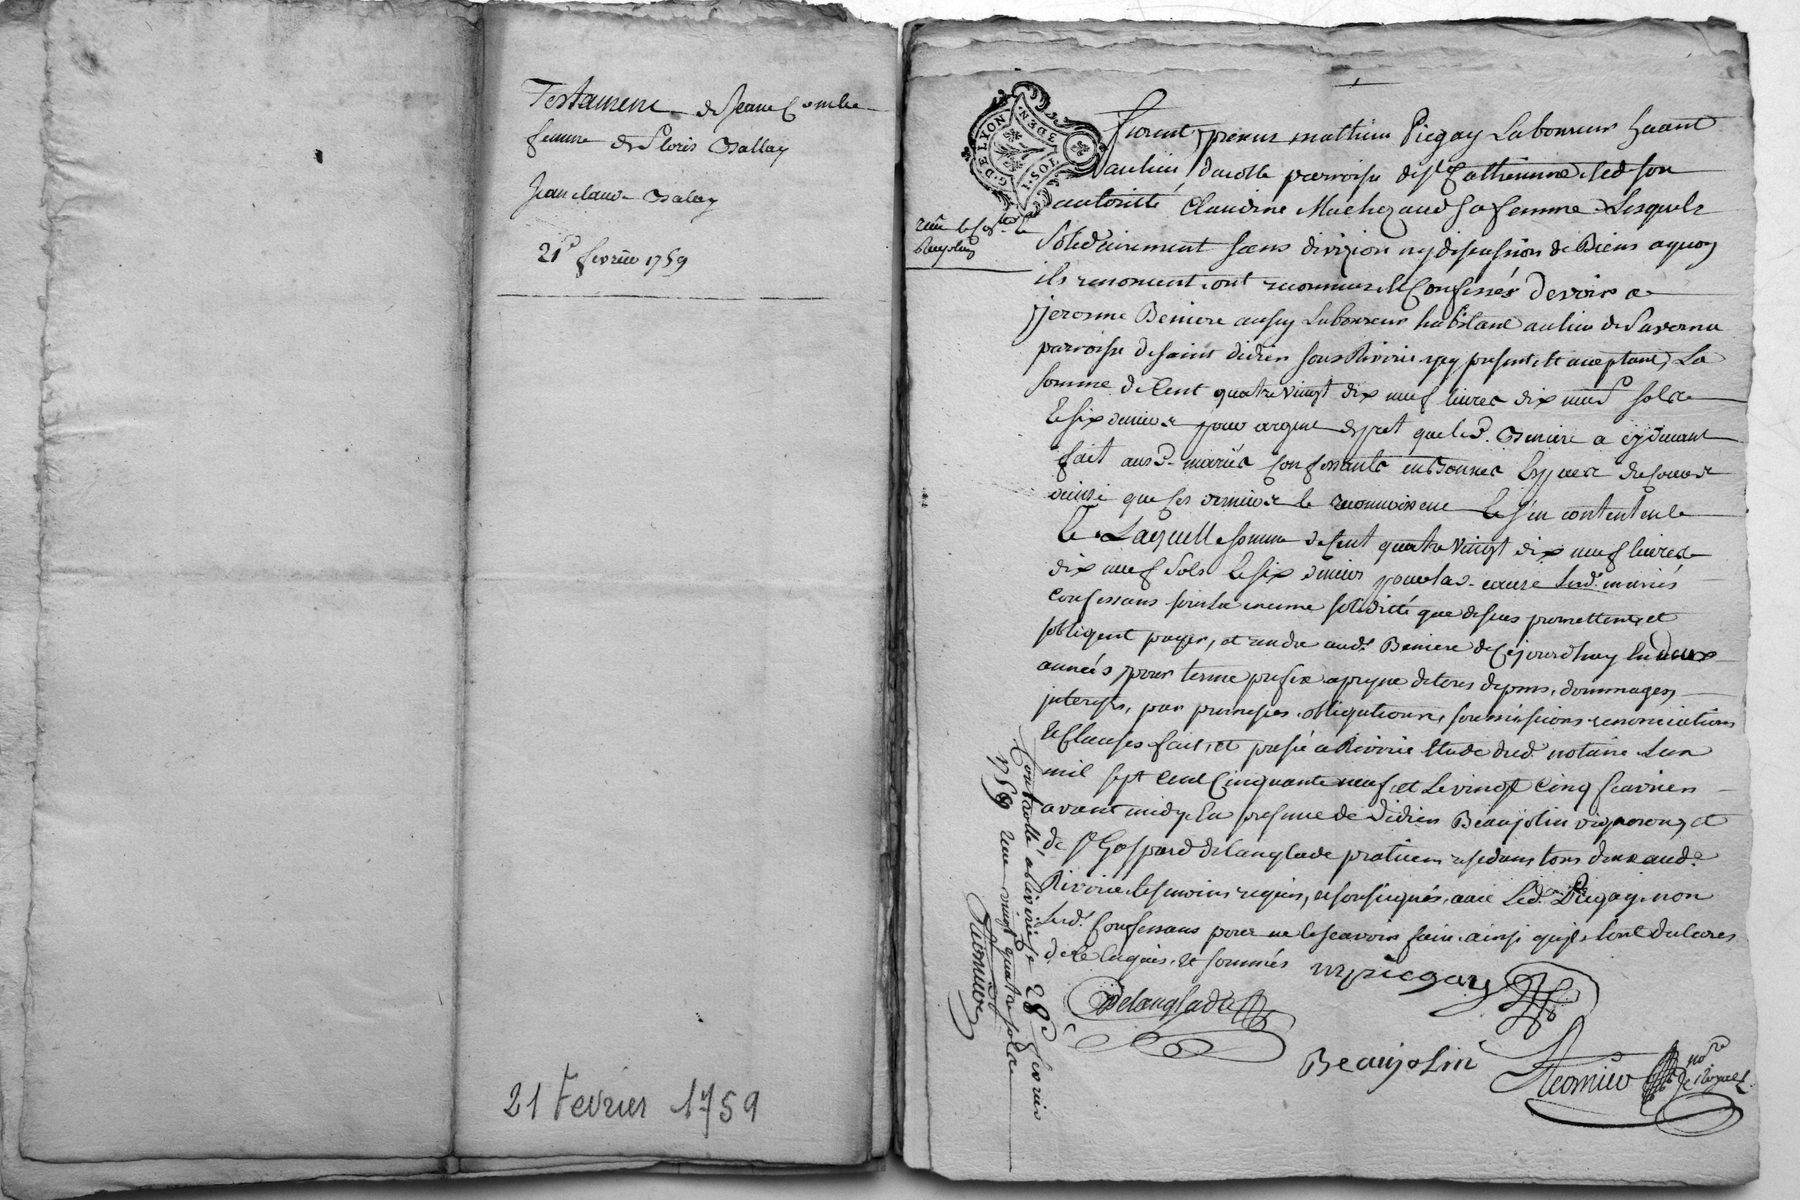 Testament de Jeane Combe
femme de Floris Ballay
Jean claude Balay
21e fevrier 1759
21 Fevrier 1759
G. DE LYON
1. SOL. 3 DEN.
furent presens mathieu Piegay Laboureur h
au lieu parroisse de st Catherinne et de son
authoritté Claudine Machezaud sa femme Lesquels
solidairement sans divizion ny discussion de Biens a quoy
ils renoncent ont reconnus et Confessés devoir a
jerosme Beniere aussy Laboureur habitant au lieu de
parroisse de saint didier sous Riverie icy present et aceptant, La
somme de Cent quatre vingt dix neuf livres dix neuf sols
et six deniers pour argent de pret que led. Beniere a cy devant
fait ausd. mariés Confessants en bonnes Espesses de cours
ainsi que ces derniers le reconnoissent et s'en contentent
Laquelle somme de Cent quatre vingt dix neuf livres
dix neuf sols et six deniers pour lad. cause Lesd. mariés
Confessans sous la meme solidité que dessus promettent, et
sobligent payer, et rendre aud. Beniere de Cejourdhuy en deux
années pour terme prefix a peyne de tous depens, dommages,
interests, par promesses, obligations, soumissions renonciations
et Clauses fait, et passé a Riverie Etude dud. notaire Lan
mil sept Cent Cinquante neuf et Le vingt Cinq feavrier
avant midy En presence de Didier Beaujolin vigneron, et
de sr Gaspard delanglade praticien residans tous deux aud.
Riverie temoins requis, et sousignés, avec Led. Piegay non
Confessans pour ne le scavoir faire ainsi quils ont declarés
de ce enquis, et sommés
mpiegay
Delanglade
Beaujolin
nore Royal
Controllé a Riverie le 28e fevrier
1759 Reçu vingt quatre sols